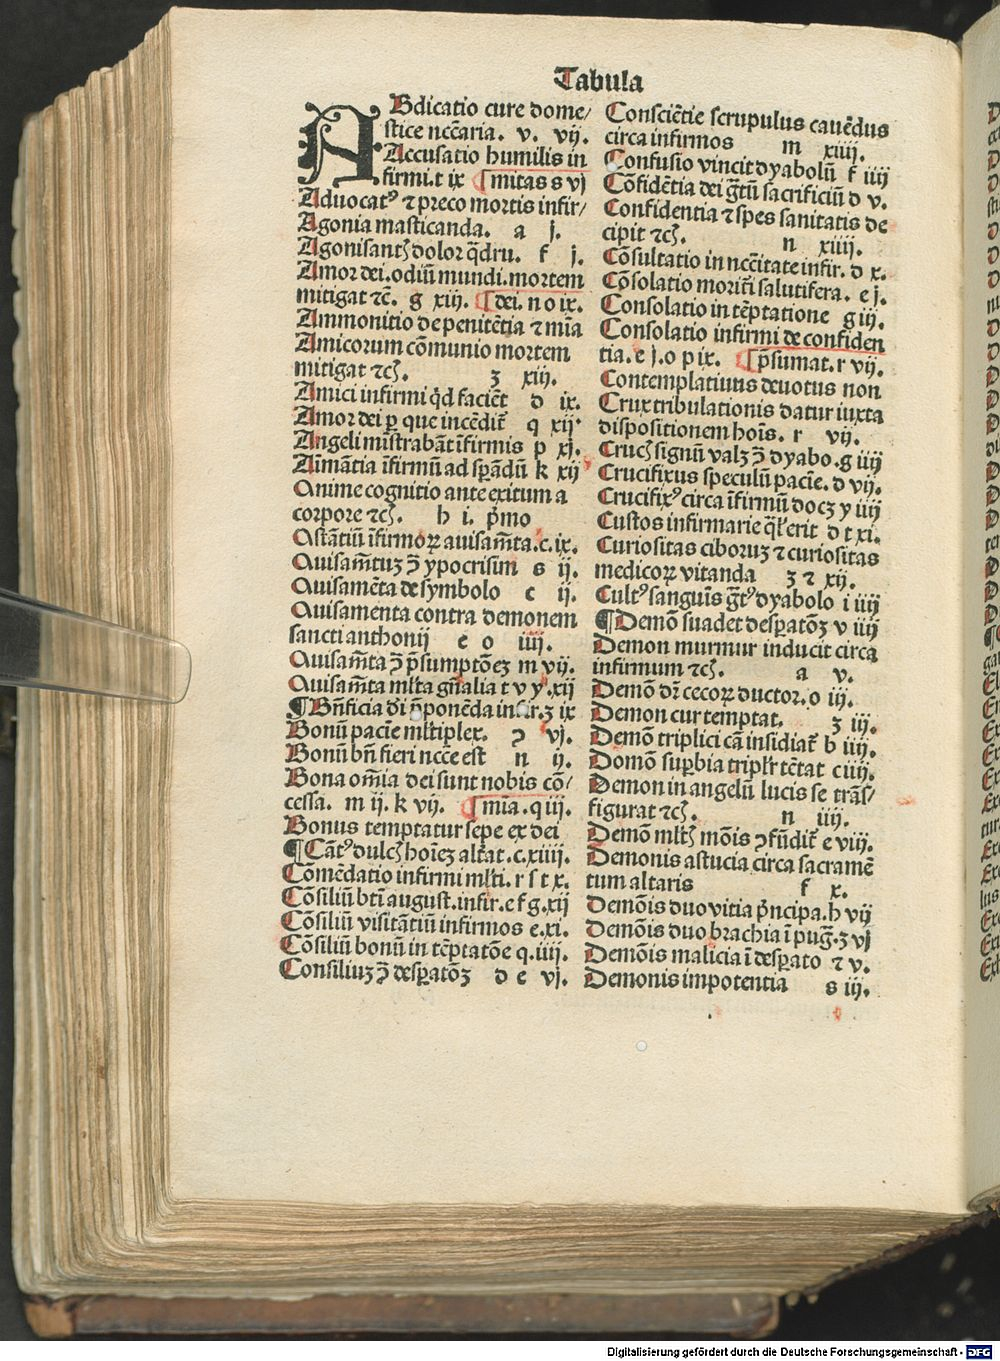 Tabula
ABdicatio cure dome/
stice nccāria. v. vij.
Accusatio humilis in
firmi.t ix ⸿mitas s vj
Aduocatꝰ ⁊ preco mortis infir/
Agonia masticanda. a j.
Agonisantꝭ dolor q̄dru. f j.
Amor dei.odiū mundi.mortem
mitigat ⁊c̄. g xiij. ⸿dei. n o ix.
Ammonitio de penitētia ⁊ mīa
Amicorum cōmunio mortem
mitigat ⁊cꝭ. ʒ xij.
Amici infirmi qd̄ faciēt d ix.
Amor dei ꝑ que incēdit̄ q xij
Angeli mīstrabāt īfirmis p xj.
Aīmātia īfirmū ad sꝑandū k xij
Anime cognitio ante exitum a
corpore ⁊cꝭ. h i. p̄mo
Astātiū īfirmoꝝ auisam̄ta.c.ix.
Auisam̄tuꝫ ↄ̄ ypocrisim s ij.
Auisamēta de symbolo c ij.
Auisamenta contra demonem
sancti anthonij e o iiij.
Auisam̄ta ↄ̄ p̄sumptōeꝫ m vij.
Auisam̄ta ml̄ta gn̄alia t v y xij
¶Bn̄ficia dī p̄ponēda infir.ʒ ix
Bonū pacīe ml̄tiplex. ꝯ vj.
Bonū bn̄ fieri ncc̄e est n ij.
Bona om̄ia dei sunt nobis cō/
cessa. m ij. k vij. ⸿mīa.q iij.
Bonus temptatur sepe ex dei
¶Cātꝰ dulcꝭ hoīeꝫ alt̄at.c.xiiij.
Cōmēdatio infirmi ml̄ti. r s t x.
Cōsiliū bt̄i august.infir.e f g.xij
Cōsiliū visitātiū infirmos e.xi.
Cōsiliū bonū in tēptatōe q.iiij.
Consiliuꝫ ↄ̄ desꝑatōꝫ d e vj.
Consciētie scrupulus cauēdus
circa infirmos m xiiij.
Confusio vincit dyabolū f iiij
Cōfidētia dei gr̄tū sacrificiū d v.
Confidentia ⁊ spes sanitatis de
cipit ⁊cꝭ. n xiiij.
Cōsultatio in ncc̄itate infir. d x.
Cōsolatio morit̄i salutifera. e j.
Consolatio in tēptatione g iij.
Consolatio infirmi de confiden
tia.e j.o p ix. ⸿p̄sumat.r vij.
Contemplatiuus deuotus non
Crux tribulationis datur iuxta
dispositionem hoīs. r vij.
Crucꝭ signū valꝫ ↄ̄ dyabo.g iiij
Crucifixus speculū pacīe. d vij.
Crucifixꝰ circa īfirmū docꝫ y iiij
Custos infirmarie q̄l̄ erit d t xi.
Curiositas ciboruꝫ ⁊ curiositas
medicoꝝ vitanda ʒ ⁊ xij.
Cultꝰ sanguīs gr̄tꝰ dyabolo i iiij
¶Demō suadet desꝑatōꝫ v iiij
Demon murmur inducit circa
infirmum ⁊cꝭ. a v.
Demō dr̄ cecoꝝ ductor. o iij.
Demon cur temptat. ʒ iij.
Demō triplici cā insidiat̄ b iiij.
Domō suꝑbia triplr̄ tētat c iiij.
Demon in angelū lucis se trās/
figurat ⁊cꝭ. n iiij.
Demō ml̄tꝭ mōis ꝯfūdit̄ e viij.
Demonis astucia circa sacramē
tum altaris f x.
Demōis duo vitia p̄ncipa.h vij
Demōis duo brachia ī pug̃.ʒ vj
Demōis malicia ī desꝑato ⁊ v.
Demonis impotentia s iij.
Digitalisierung gefördert durch die Deutsche Forschungsgemeinschaft - DFG